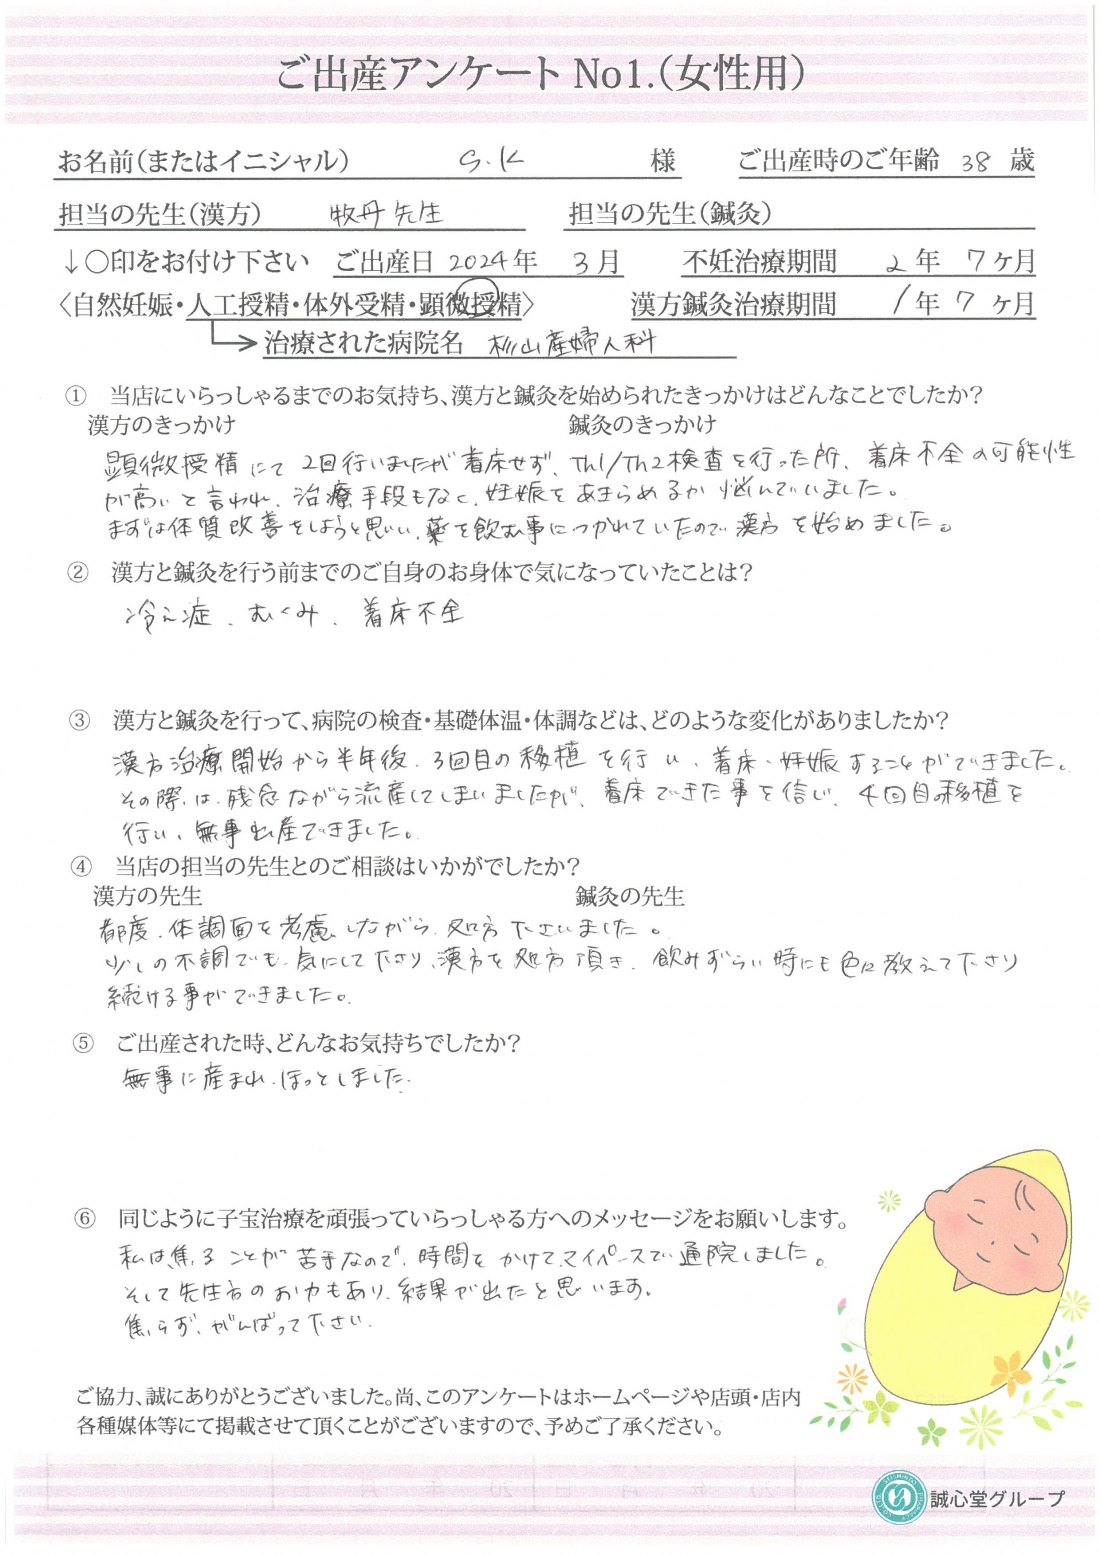 ご出産アンケート No1.(女性用)
お名前(またはイニシャル) S.K 様 ご出産時のご年齢 38 歳
担当の先生(漢方) 牧丹先生 担当の先生(鍼灸)
↓○印をお付け下さい ご出産日 2024年 3月 不妊治療期間 2年 7ヶ月
〈自然妊娠・人工授精・体外受精・顕微授精〉 漢方鍼灸治療期間 1年 7ヶ月
治療された病院名 杉山産婦人科
① 当店にいらっしゃるまでのお気持ち、漢方と鍼灸を始められたきっかけはどんなことでしたか?
漢方のきっかけ 鍼灸のきっかけ
顕微授精にて2回行いましたが着床せず、Th1/Th2検査を行った所、着床不全の可能性
が高いと言われ、治療手段もなく、妊娠をあきらめるか悩んでいました。
まずは体質改善をしようと思い、薬を飲む事につかれていたので漢方を始めました。
② 漢方と鍼灸を行う前までのご自身のお身体で気になっていたことは?
冷え症、むくみ、着床不全
③ 漢方と鍼灸を行って、病院の検査・基礎体温・体調などは、どのような変化がありましたか?
漢方治療開始から半年後、3回目の移植を行い、着床・妊娠することができました。
その際は、残念ながら流産してしまいましたが、着床できた事を信じ、4回目の移植を
行い、無事出産できました。
④ 当店の担当の先生とのご相談はいかがでしたか?
漢方の先生 鍼灸の先生
都度、体調面を考慮しながら、処方下さいました。
少しの不調でも気にして下さり、漢方を処方頂き、飲みずらい時にも色々教えて下さり
続ける事ができました。
⑤ ご出産された時、どんなお気持ちでしたか?
無事に産まれ、ほっとしました。
⑥ 同じように子宝治療を頑張っていらっしゃる方へのメッセージをお願いします。
私は焦ることが苦手なので、時間をかけてマイペースで通院しました。
そして先生方のお力もあり、結果が出たと思います。
焦らず、がんばって下さい。
ご協力、誠にありがとうございました。尚、このアンケートはホームページや店頭・店内
各種媒体等にて掲載させて頂くことがございますので、予めご了承ください。
誠心堂グループ